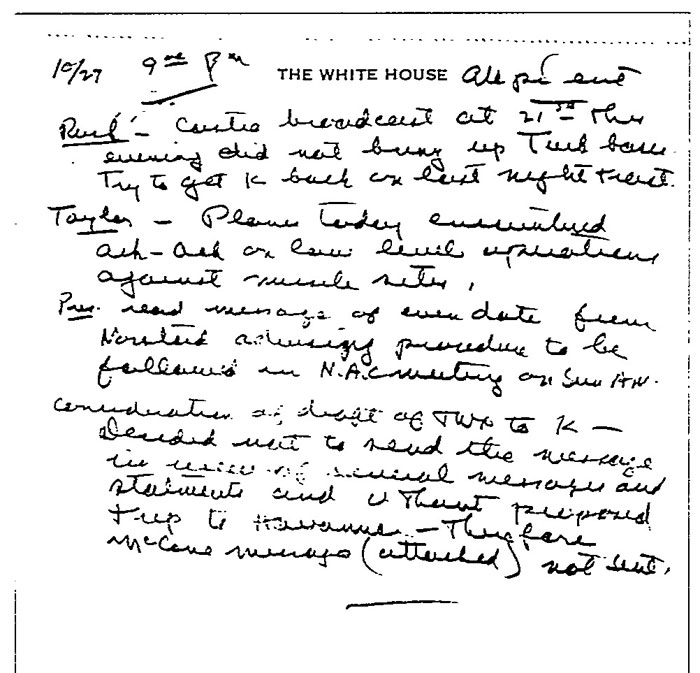 10/27 9 00 Pm THE WHITE HOUSE All present
Rusk - Castro broadcast at this
evening did not bring up Turk bases.
Try to get K back on last night
Taylor - Planes today encountered
ack-ack on low level operations
against missile sites.
Pres. read message of even date from
Norstad advising procedure to be
followed in N.A.C meeting on Sun AM.
Consideration of draft of TWX to K -
Decided not to send the message
in view of several messages and
statments and U Thant proposed
trip to Havanna - Therefore
McCone message (attached) not sent.